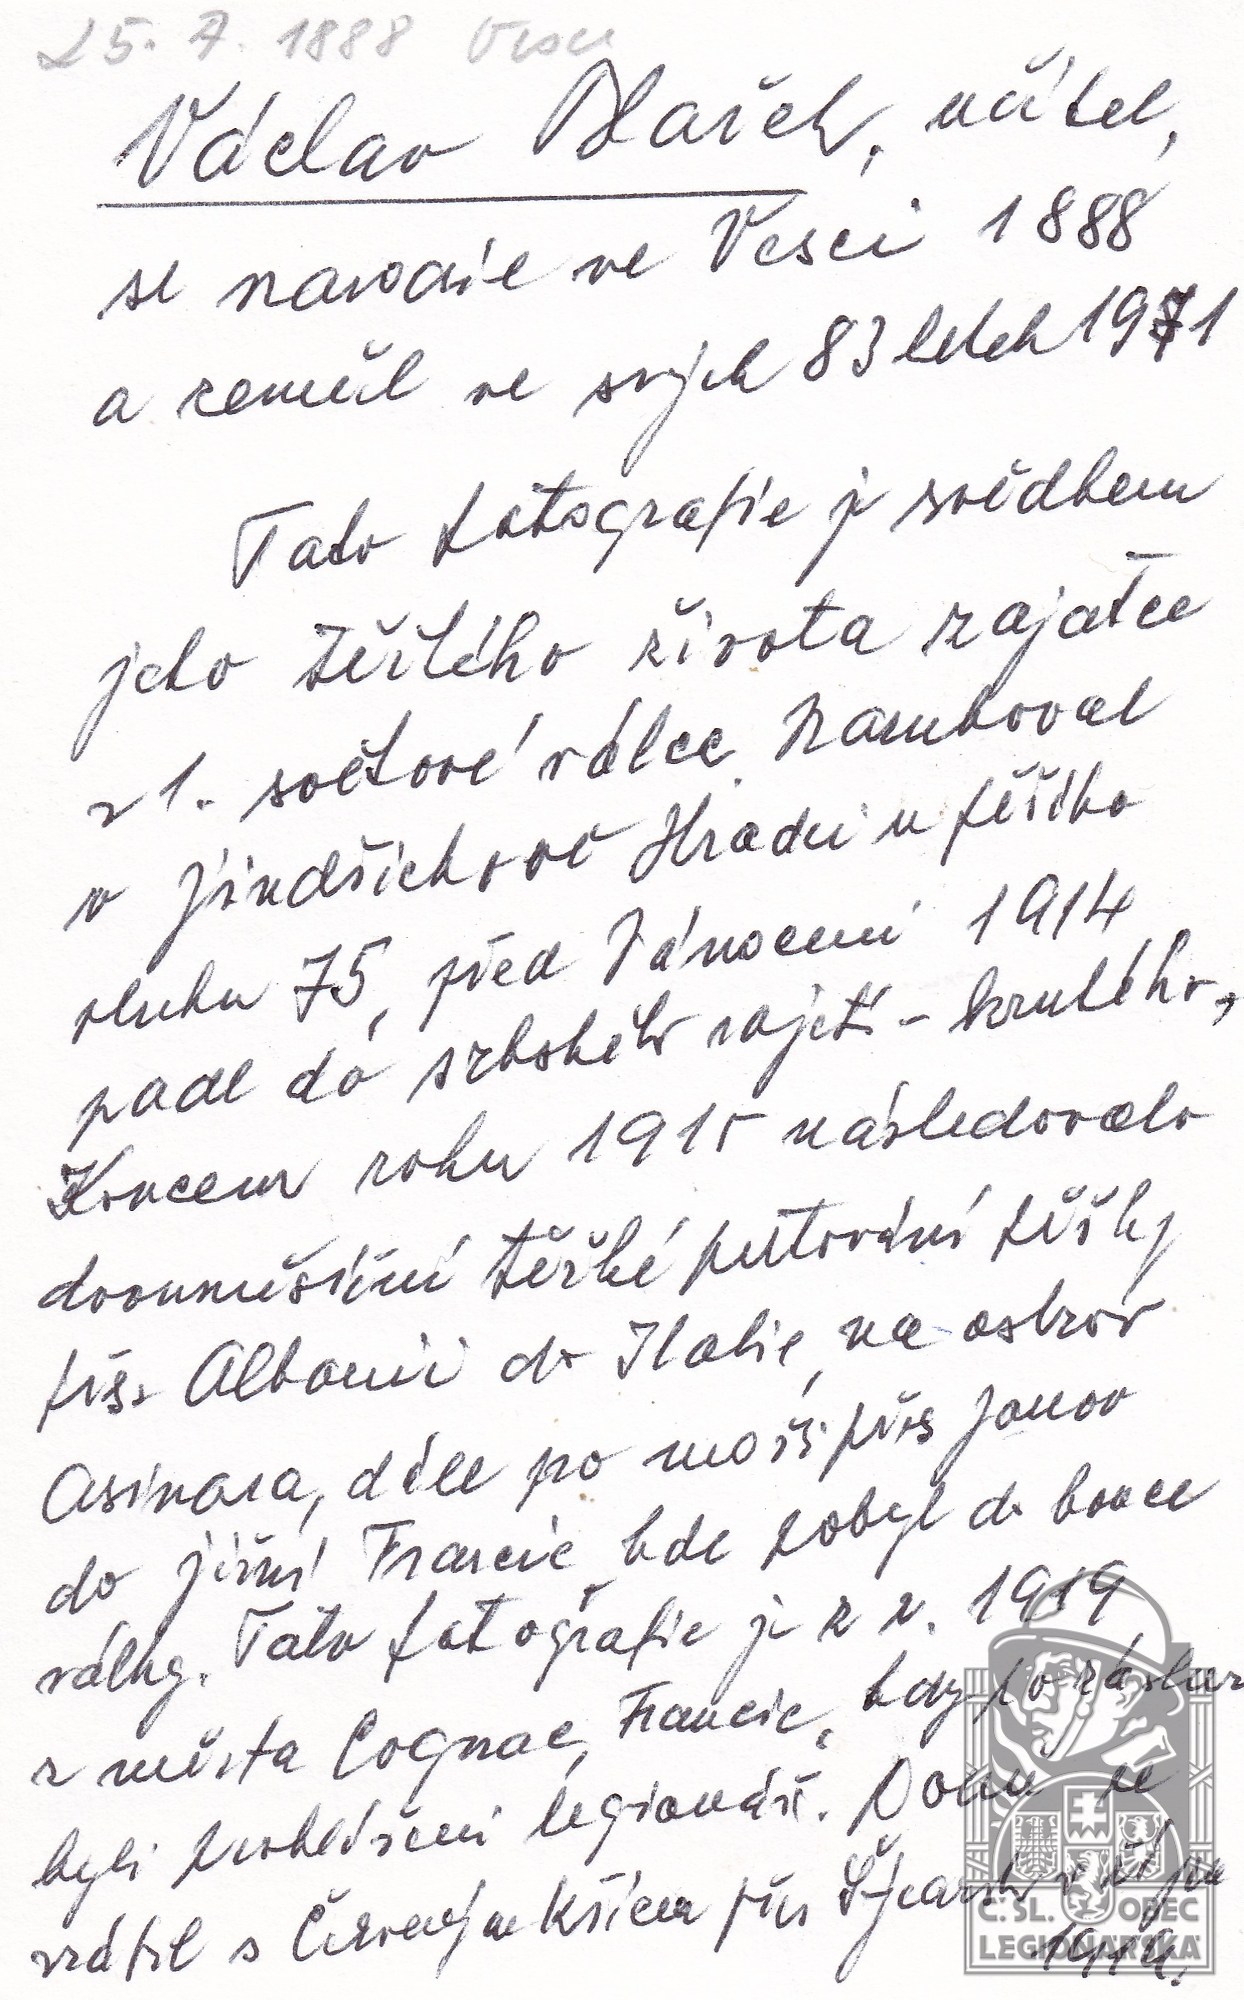 25. 7. 1888 Vesce
Václav Blažek, učitel,
se narodil ve Vesci 1888
a zemřel ve svých 83 letech 1971
Tato fotografie je svědkem
jeho těžkého života zajatce
v 1. světové válce. Narukoval
v Jindřichově Hradci u pěšího
pluku 75, před Vánocemi 1914
padl do srbského zajetí - krutého,
Koncem roku 1915 následovalo
dvouměsíční těžké putování pěšky
přes Albanii do Italie, na ostrov
Asinara, dále po moři přes Janov
do jižní Francie, kde pobyl do konce
války. Tato fotografie je z r. 1919
z města Cognac, Francie, kdy po zásluze
byli prohlášeni legionáři. Domů se
vrátil s Červeným křížem přes Švýcarsko
1919.
Č. SL. OBEC
LEGIONÁŘSKÁ